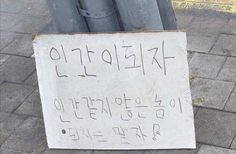 인간이 되자
인간같지 않은 놈이
되지는 말자